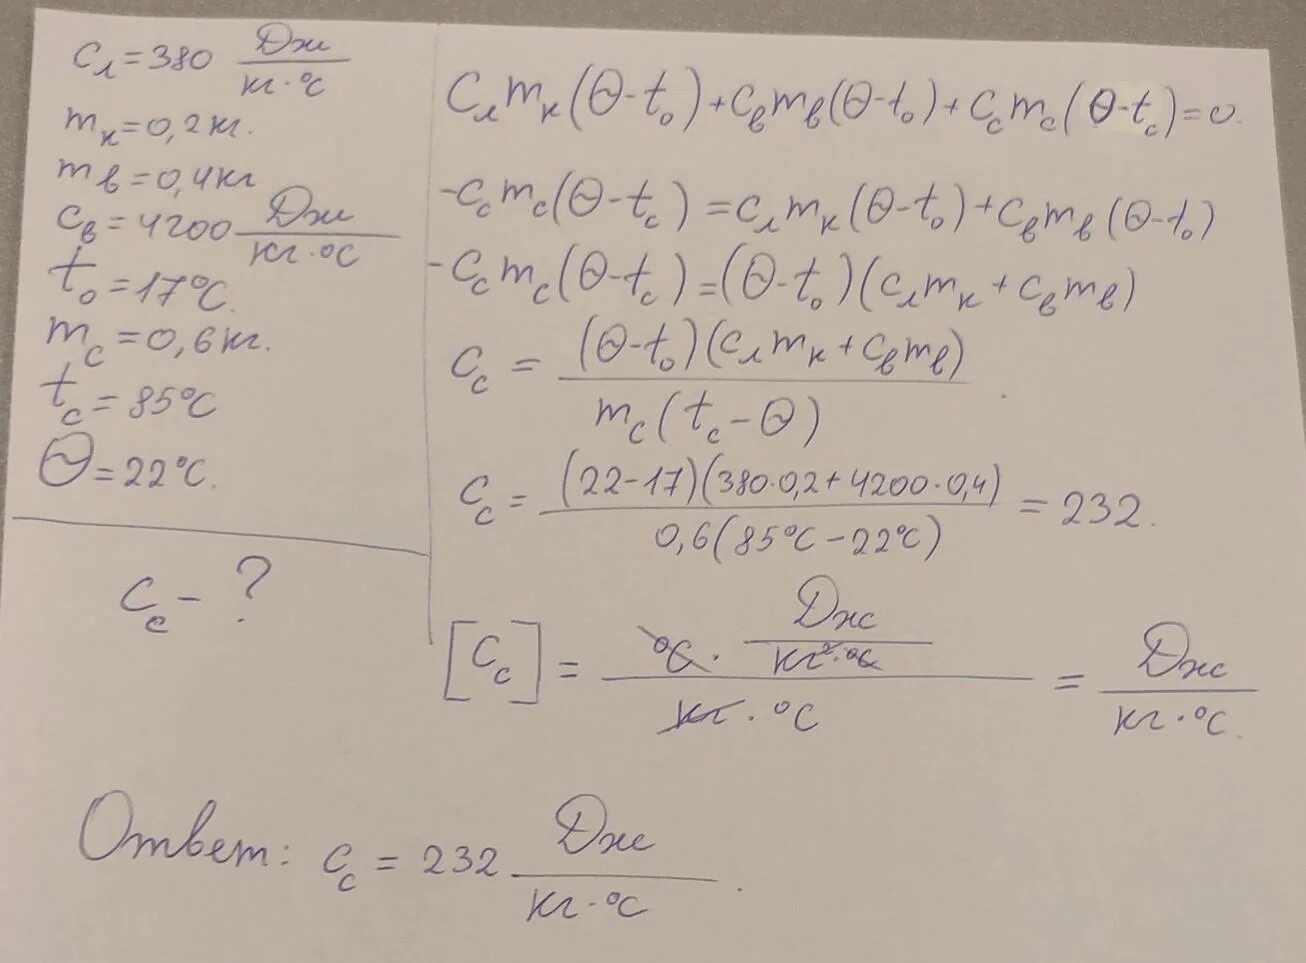 cл = 380 Дж/кг·°С
mк = 0,2 кг.
mв = 0,4 кг
cв = 4200 Дж/кг·°С
t₀ = 17°С.
mс = 0,6 кг.
tс = 85°С
Θ = 22°С.
Cс - ?
Cлmк(Θ-t₀)+cвmв(Θ-t₀)+Cсmс(Θ-tс)=0.
-Cсmс(Θ-tс)=cлmк(Θ-t₀)+cвmв(Θ-t₀)
-Cсmс(Θ-tс)=(Θ-t₀)(cлmк+cвmв)
Cс = (Θ-t₀)(cлmк+cвmв)/mс(tс-Θ)
Cс = (22-17)(380·0,2+4200·0,4)/0,6(85°С-22°С) = 232.
[Cс] = °С · Дж/кг²·°С / кг·°С = Дж/кг·°С.
Ответ: Cс = 232 Дж/кг·°С.